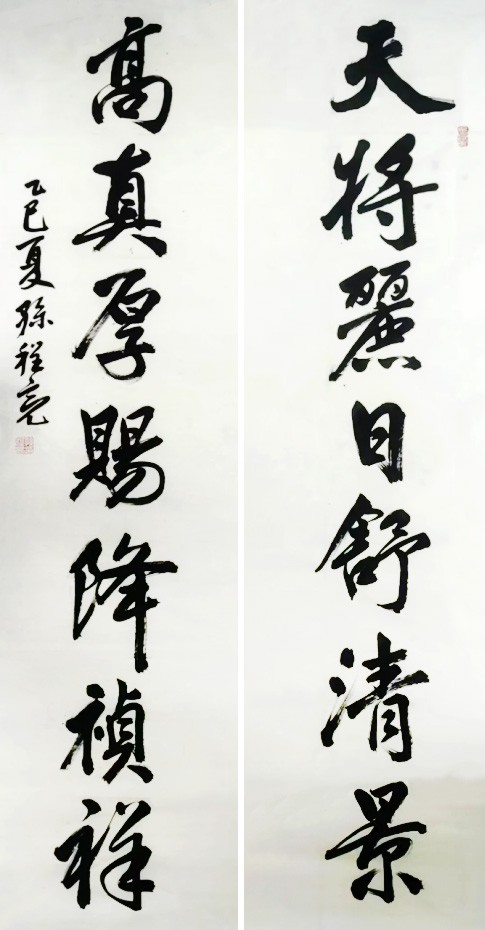 天将麗日舒清景
高真厚賜降禎祥
乙巳夏孫程亮